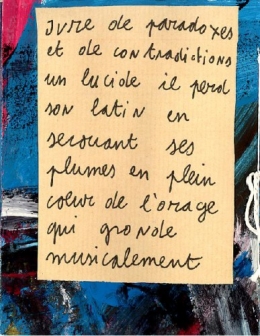 Ivre de paradoxes
et de contradictions
un lucide il perd
son latin en
secouant ses
plumes en plein
cœur de l'orage
qui gronde
musicalement